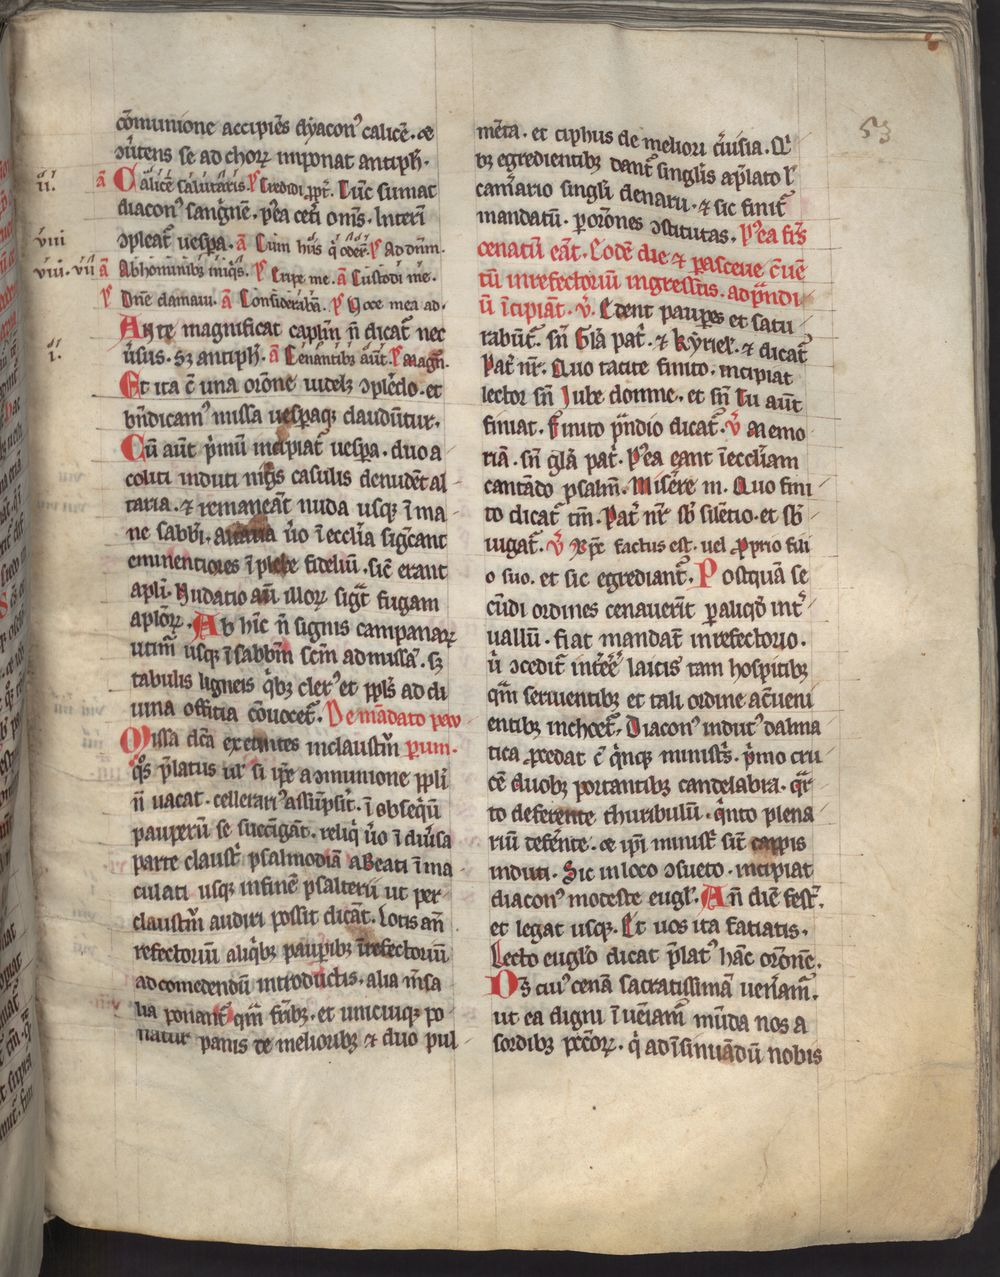 53
cõmunione accipiẽs dyaconꝰ calicẽ. et
ɔũtens se ad choꝝ imponat antiph̃.
ii. ã Calicẽ salutaris. p̃ Credidi ꝓpt̃. Tũc sumat
diaconꝰ sanguinẽ. p̃ea cet̃i om̃s. Interĩ
viii ɔpleat̃ vespa. ã Cum hiis q̃ oder̃. p̃ Ad dñm.
viii. vii ã Ab hominibꝫ iniq̃s. p̃ Eripe me. ã Custodi me.
p̃ Dñe clamaui. ã Considerabã. p̃ Uoce mea ad.
Ante magnificat caplm̃ ñ dicat̃ nec
i. ũsus. Sꝫ antiph̃. ã Cenantibꝫ aut̃. p̃ Magñ.
Et ita c̃ una or̃one uidelꝫ ɔplẽdo. et
bñdicamꝰ missa uespaqꝫ claudũtur.
Cũ aut̃ p̃mũ incipiat̃ vespa. duo a
coliti induti nigͥs casulis denudẽt al
taria. ⁊ remaneãt nuda usqꝫ ĩ ma
ne sabbi. altaria ũo ĩ eccl̃ia sig̃cant
eminentiores ĩ plebe fideliũ. sic̃ erant
apl̃i. Nudatio aũ illoꝝ sigt̃ fugam
aplõꝝ. Ab hĩc ñ signis campanaꝝ
utim̃ usqꝫ ĩ sabbm̃ scm̃ ad missã. sꝫ
tabulis ligneis q̃bꝫ clerꝰ et ppl̃s ad di
uina offitia cõuocet̃. De mãdato pau
Missa dc̃a exeũntes in claustrm̃ perum.
q̃s p̃latus ul̃ si ip̃e a ɔmunione ppl̃i
ñ uacat. cellerariꝰ assũpsit̃. ĩ obseq̃ũ
pauperũ se succĩgãt. reliq̃ ũo ĩ diũsa
parte claust̃ psalmodiã a Beati ĩ ma
culati usqꝫ in finẽ psalterii ut per
claustrm̃ audiri possit dicãt. Lotis añ
refectoriũ aliq̃bꝫ paupibꝫ ĩ refectoriũ
ad comedendũ introductis. alia m̃sa
lia ponant̃ q̃m fr̃ibꝫ. et unicuiqꝫ po
natur panis de melioribꝫ ⁊ duo pul
mẽta. et ciphus de meliori c̃uisia. Qͥ
bꝫ egredientibꝫ dant̃ singulis a p̃lato l̃
cam̃ario singl̃i denarii. ⁊ sic finit̃
mandatũ. p or̃ones ɔstitutas. p̃ea fr̃s
cenatũ eãt. Eodẽ die ⁊ parasceue c̃uẽ
tũ in refectoriũ ingressuris. ad p̃ndi
ũ ĩcipiãt. ṽ. Edent paupes et satu
rabũt̃. sñ Glã pat̃. ⁊ Kyriel̃. ⁊ dicat̃
Pat̃ nr̃. Quo tacite finito. incipiat
lector sñ Iube domne. et sñ Tu aut̃
finiat. Finito p̃ndio dicat̃. ṽ Memo
riã. sñ glã pat̃. p̃ea eant ĩ eccl̃iam
cantãdo psalm̃. Miser̃e m. Quo fini
to dicat̃ tm̃. Pat̃ nr̃ sb̃ silẽtio. et sb̃
iũgat̃. ṽ Xp̃c factus est. vel ꝓprio fili
o suo. et sic egrediant̃. Postquã se
cũdi ordines cenauer̃it p aliqd̃ int̃
uallũ. fiat mandat̃ in refectorio.
ũ ɔcedit̃ int̃ẽẽ laicis tam hospitibꝫ
q̃m seruientibꝫ et tali ordine ac̃ueni
entibꝫ inchoet̃. Diaconꝰ indutꝰ dalma
tica p̃cedat c̃ q̃nqꝫ minist̃s. p̃mo cru
cẽ duobꝫ portantibꝫ candelabra. q̃r
to deferente thuribulũ. q̃nto plena
riũ defer̃te. et ip̃i minist̃ sĩt cappis
induti. Sic in loco ɔsueto. incipiat
diaconꝰ modeste eugl̃. Añ diẽ fest̃.
et legat usqꝫ. Et uos ita fatiatis.
Lecto eugl̃o dicat p̃latꝰ hãc or̃onẽ.
Dꝫ cuiꝰ cenã sacratissimã uenãm̃.
ut ea digni ĩueĩam̃ mũda nos a
sordibꝫ pcc̃oꝝ. q̃ ad ĩsinuãdũ nobis